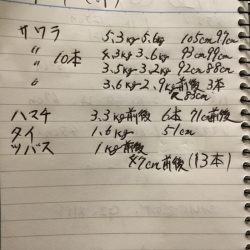 サワラ 5.3kg 5.6kg 105cm 99cm
〃 10本 4.3kg 3.6kg 93cm 99cm
〃 3.5kg 3.2kg 92cm 88cm
〃 3.6kg~2.9kg前後 3本
83cm
ハスチ 3.3kg前後 6本 71cm前後
タイ 1.6kg 51cm
ツバス 1kg前後
47cm前後(13本)